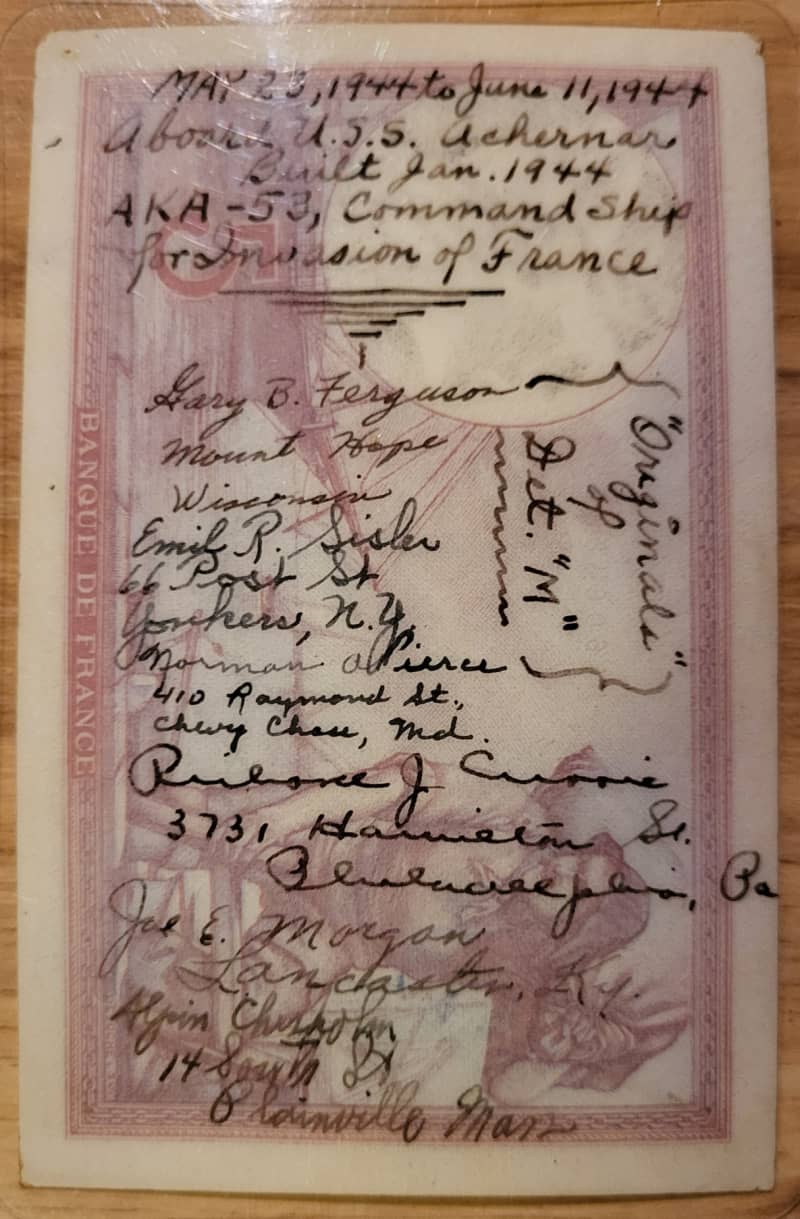 MAY 23, 1944 to June 11, 1944
Aboard U.S.S. Achernar
Built Jan. 1944
AKA-53, Command Ship
for Invasion of France
5
Gary B. Ferguson
Mount Hope
Wisconsin
Emil R. Sisler
66 Post St
Yonkers, N.Y.
Norman A Pierce
410 Raymond St.,
Chevy Chase, Md.
"Originals"
of
Det. "M"
J
3731 Hamilton St.
Pa
Joe E. Morgan
Lancaster, Ky.
Alpin Chisholm
14 South St
Plainville Mass
BANQUE DE FRANCE